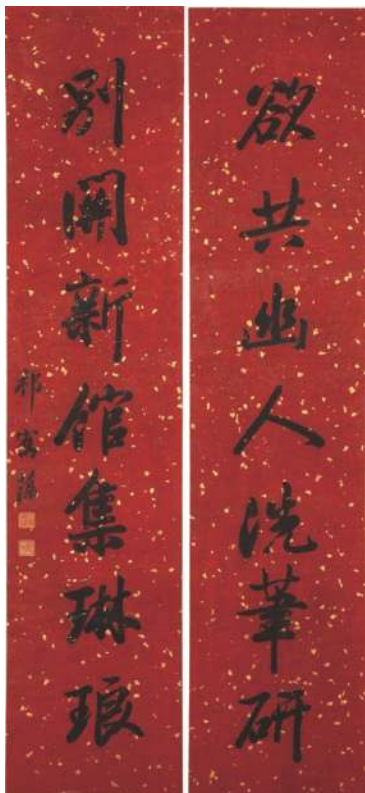 欲共幽人洗筆研
別開新館集琳琅
祁寯藻